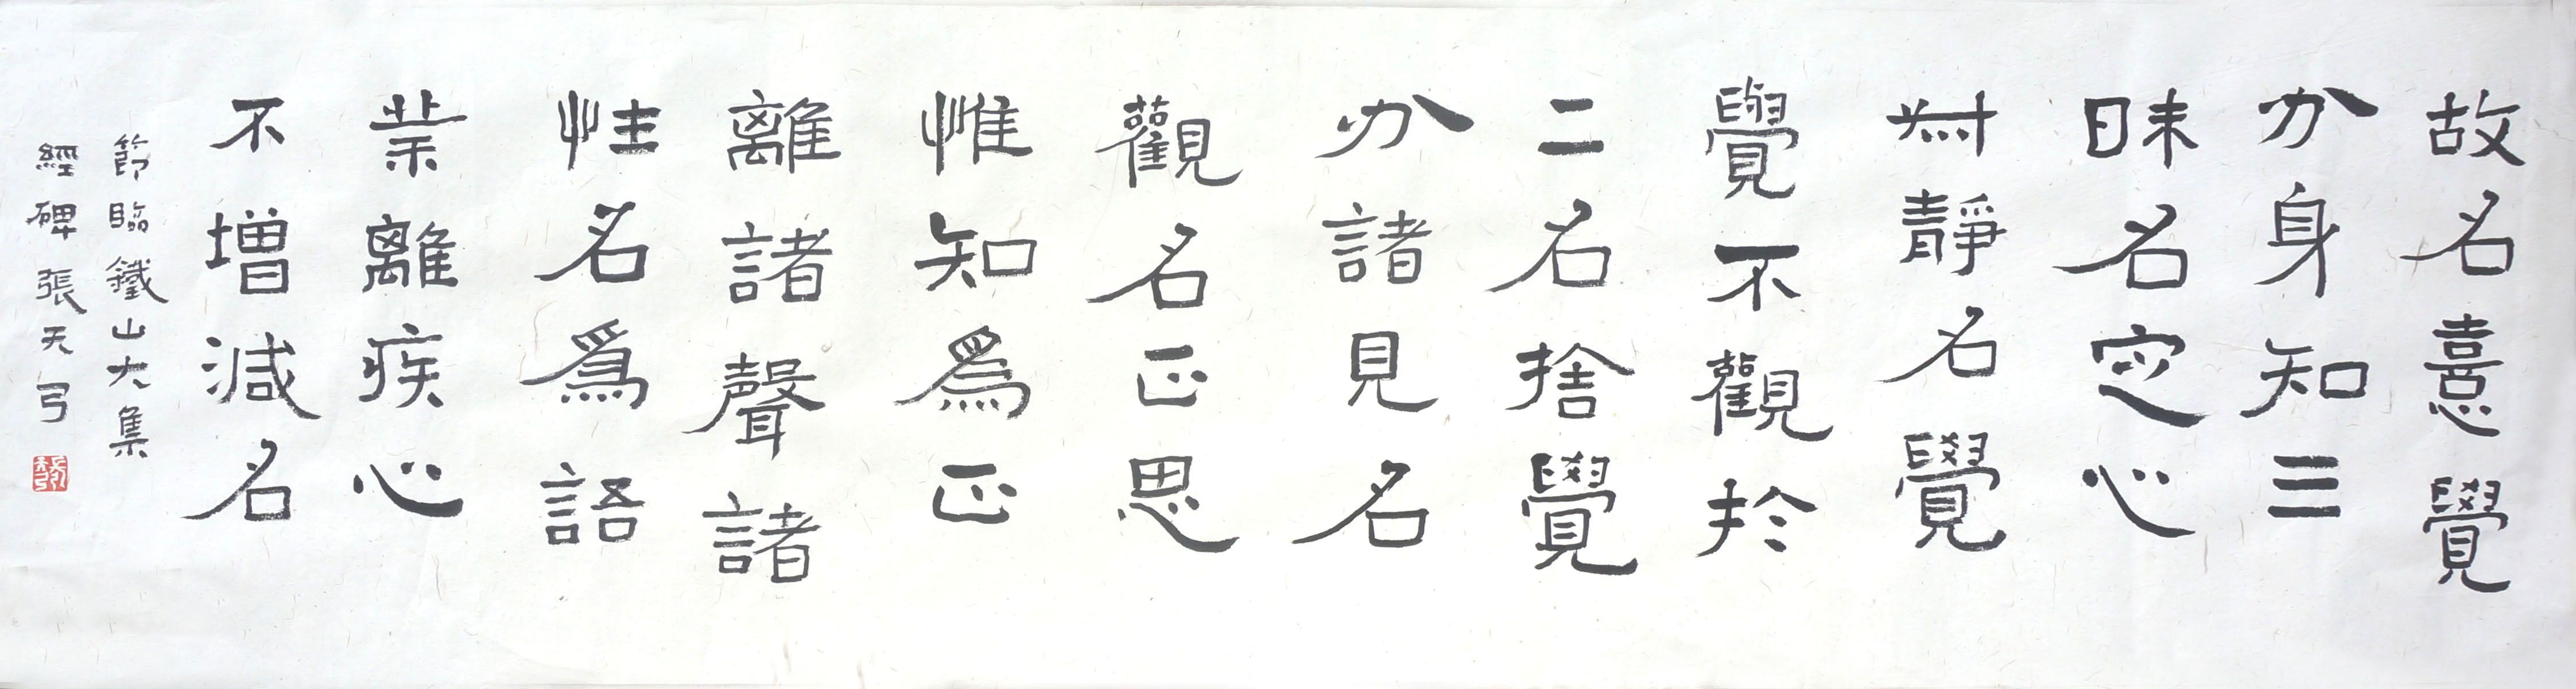 故名憙覺
力身知三
昧名定心
寂靜名覺
覺不觀於
二名捨覺
力諸見名
觀名正思
惟知為正
離諸聲諸
性名為語
業離疾心
不增減名
節臨鐵山大集
經碑張天弓